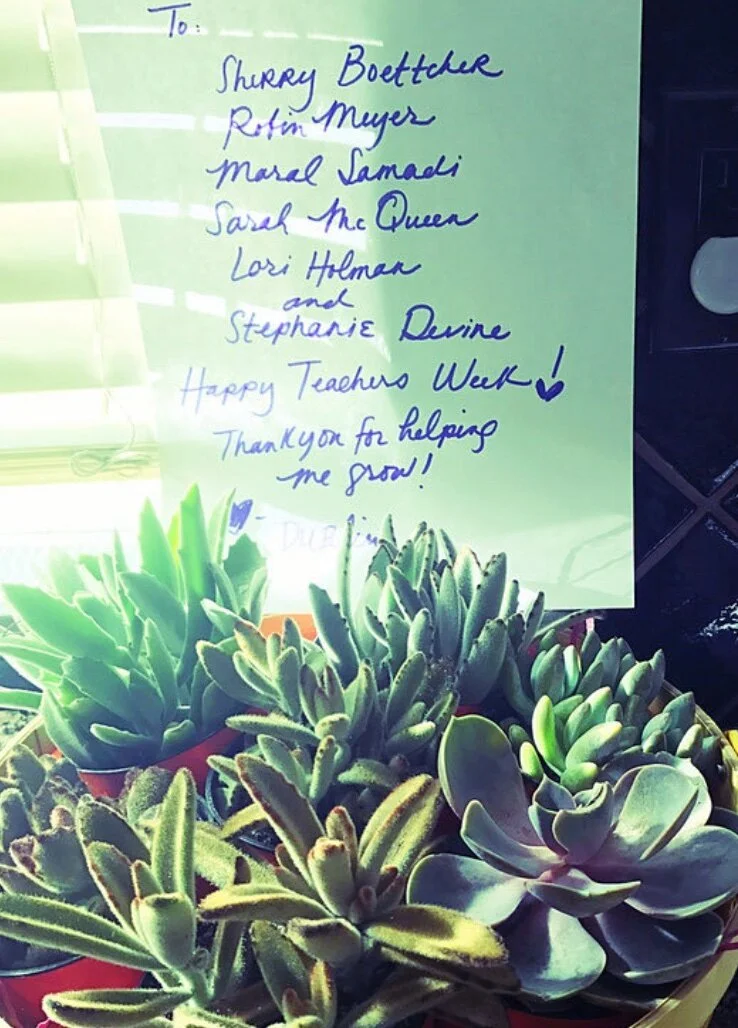 To:
Sherry Boettcher
Robin Meyer
Maral Samadi
Sarah McQueen
Lori Holman
and
Stephanie Devine
Happy Teachers Week!
Thankyou for helping
me grow!